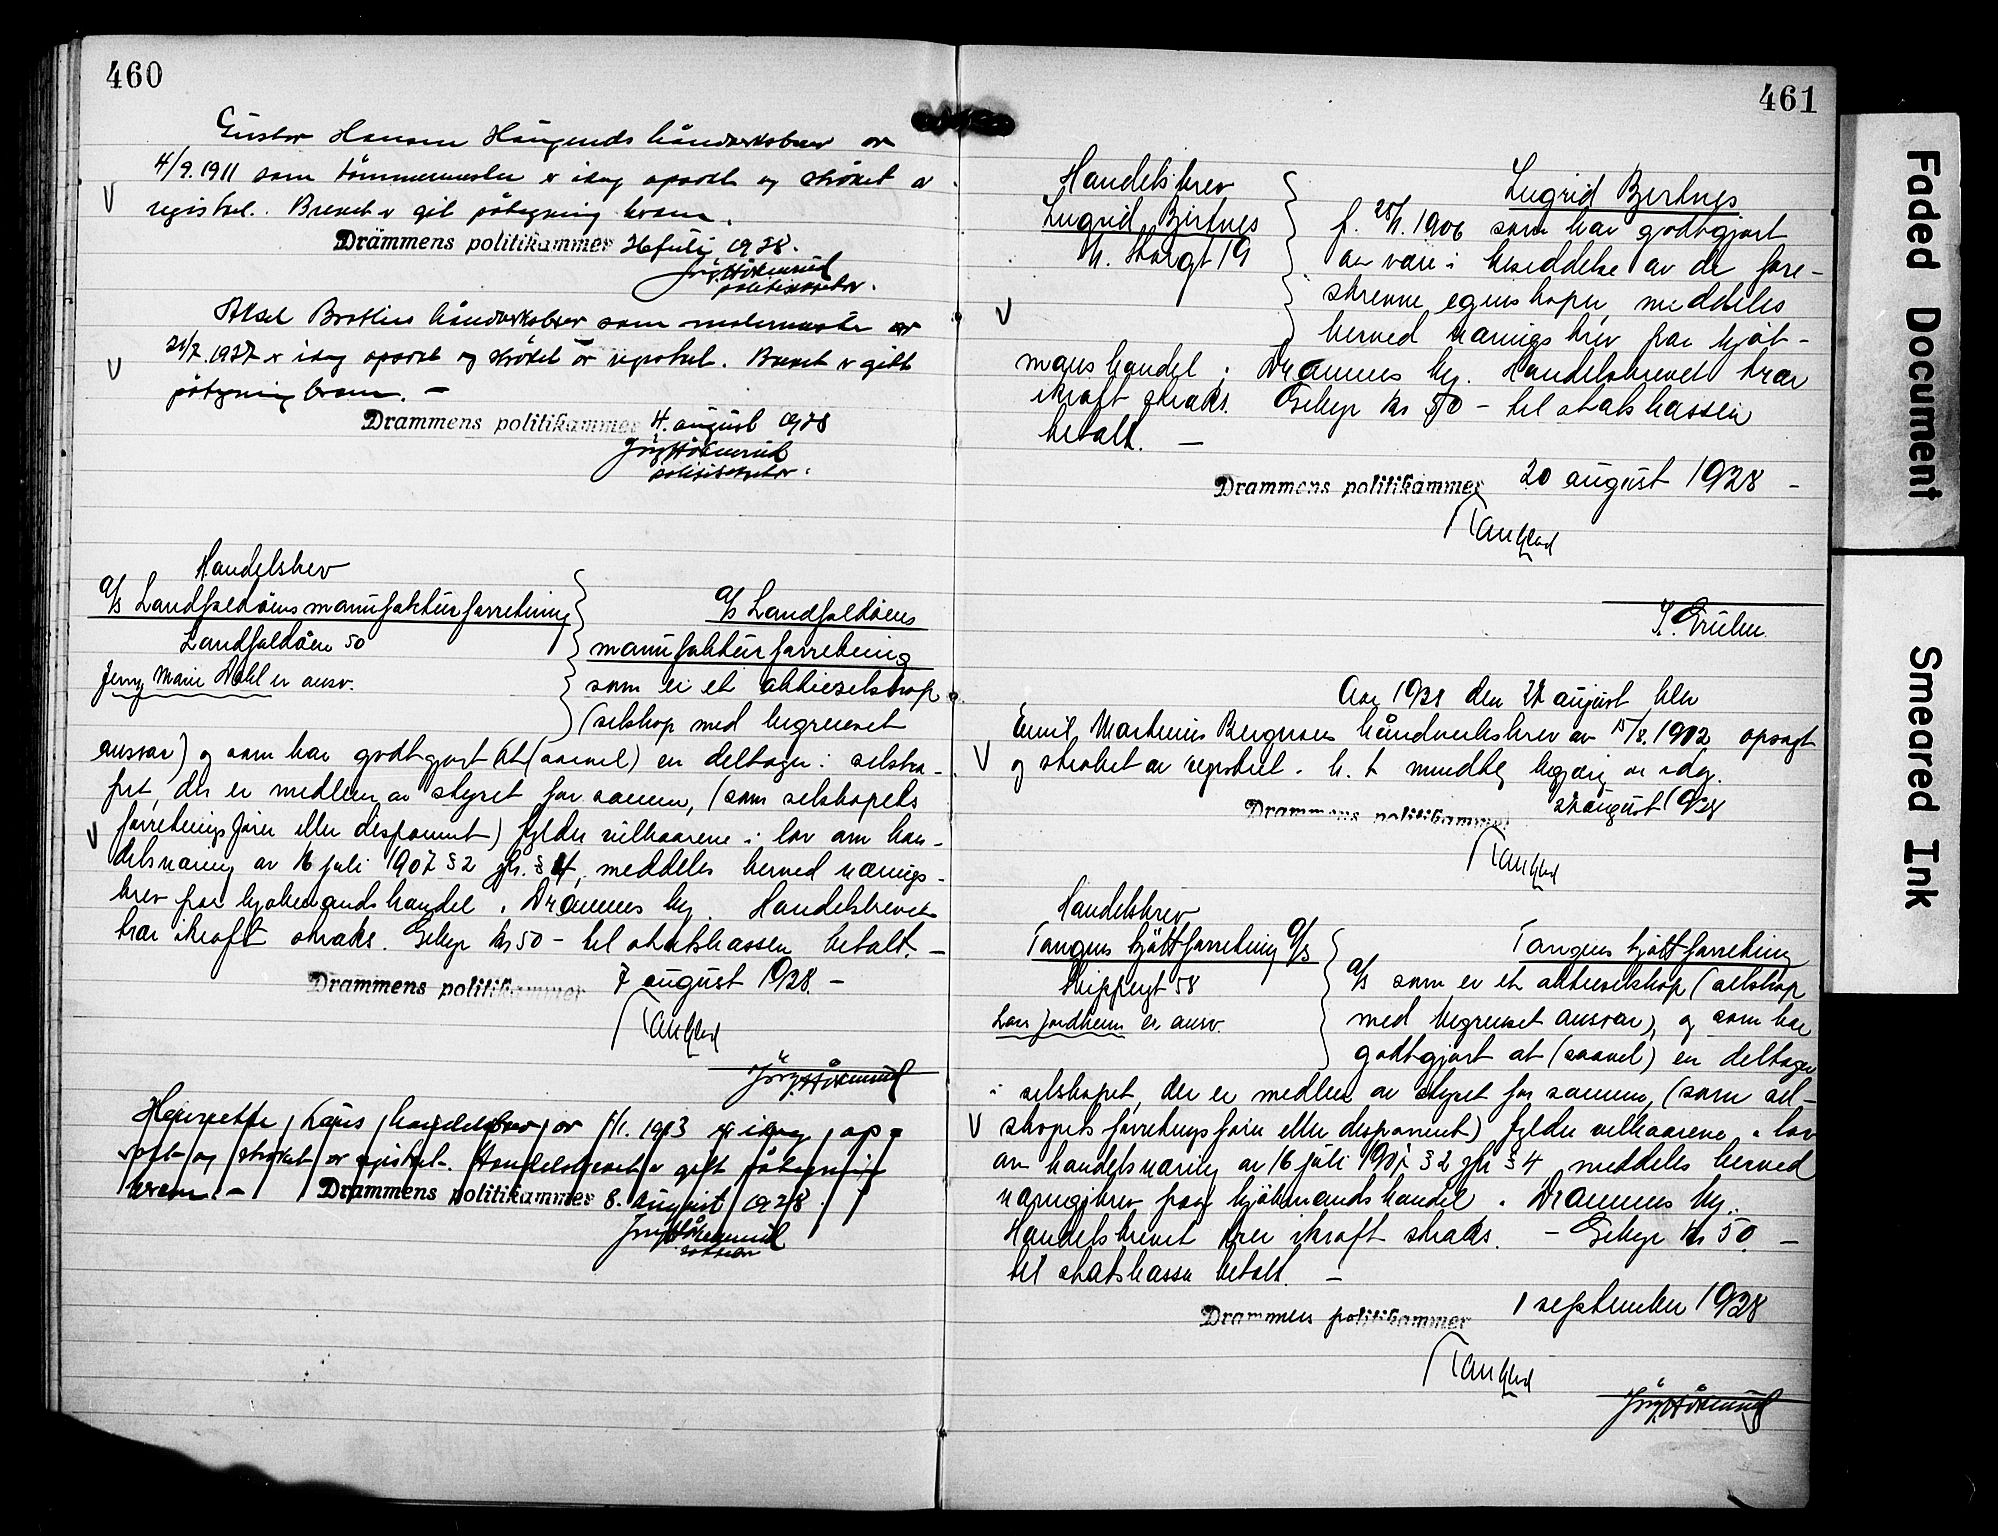 460
Gustav Hansen Haugends håndverksbrev av
4/9.1911 som tømmermester er idag opsagt og strøket av
registret. Brevet er git påtegning herom.
Drammens politikammer 26 juli 1928.
politisekretær.
Aksel Brothers håndverksbrev som malermester av
21/7.1927 er idag opsagt og strøket av registret. Brevet er gitt
påtegning herom. —
Drammens politikammer 4. august 1928
politisekretær.
Handelsbrev
a/s Landfaldöens manufakturforretning
Landfaldöen 50
Jenny Marie Dahl er ansv.
a/s Landfaldöens
manufakturforretning
som er et aktieselskap
(selskap med begrenset
ansvar) og som har godtgjort at (saavel) en deltager i selska-
pet, der er medlem av styret for samme, (som selskapets
forretningsfører eller disponent) fylder vilkaarene i lov om han-
delsnæring av 16 juli 1907 § 2 jfr. § 4, meddeles herved nærings-
brev paa kjøbmandshandel i Drammens by. Handelsbrevet
trær ikraft straks. Gebyr kr 50 – til statskassen betalt. —
Drammens politikammer 7 august 1928. –
Henriette Laus handelsbrev av 1/1. 1903 er idag op-
sagt og strøket av registret. Handelsbrevet er gitt påtegning
herom. – Drammens politikammer 8. august 1928.
461
Handelsbrev
Ingrid Bertnes
N. Storgt 19
Ingrid Bertnes
f. 28/1. 1906 som har godtgjort
at være i besiddelse av de fore-
skrevne egenskaper, meddeles
herved nærings brev paa kjøb-
manshandel i Drammens by. Handelsbrevet trær
ikraft straks. Gebyr kr 50 – til statskassen
betalt. —
Drammens politikammer 20 august 1928 –
Aar 1928 den 22 august blev
Emil Martinius Bergersens håndverksbrev av 15/8.1902 opsagt
og strøket av registret. h. t. mundtlig begjæring av idag.
Drammens politikammer 22 august 1928
Handelsbrev
Tangens kjøttforretning a/s
Skippergt 58
Lars Jordheim er ansv.
Tangens kjøttforretning
a/s som er et aktieselskap (selskap
med begrenset ansvar), og som har
godtgjort at (saavel) en deltager
i selskapet, der er medlem av styret for samme, (som sel-
skapets forretningsfører eller disponent) fylder vilkaarene i lov
om handelsnæring av 16 juli 1907 § 2 jfr § 4 meddeles herved
næringsbrev paa kjøbmandshandel i Drammens by.
Handelsbrevet trær ikraft straks. – Gebyr kr 50. –
til statskassen betalt. —
Drammens politikammer 1 september 1928
Faded Document
Smeared Ink